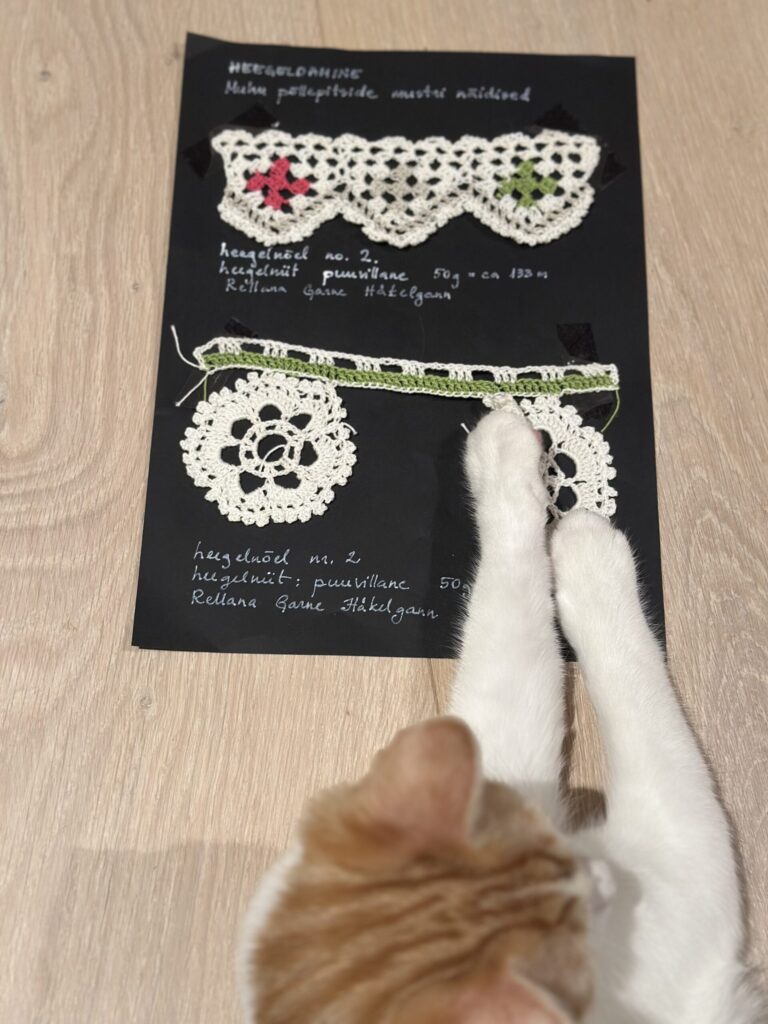 HEEGELDAMINE
Muhu põllepitside mustri näidised
heegelnõel no. 2.
heegelniit puuvillane 50g = ca 133 m
Rellana Garne Häkelgarn
heegelnõel nr. 2
heegelniit: puuvillane 50g
Rellana Garne Häkelgarn